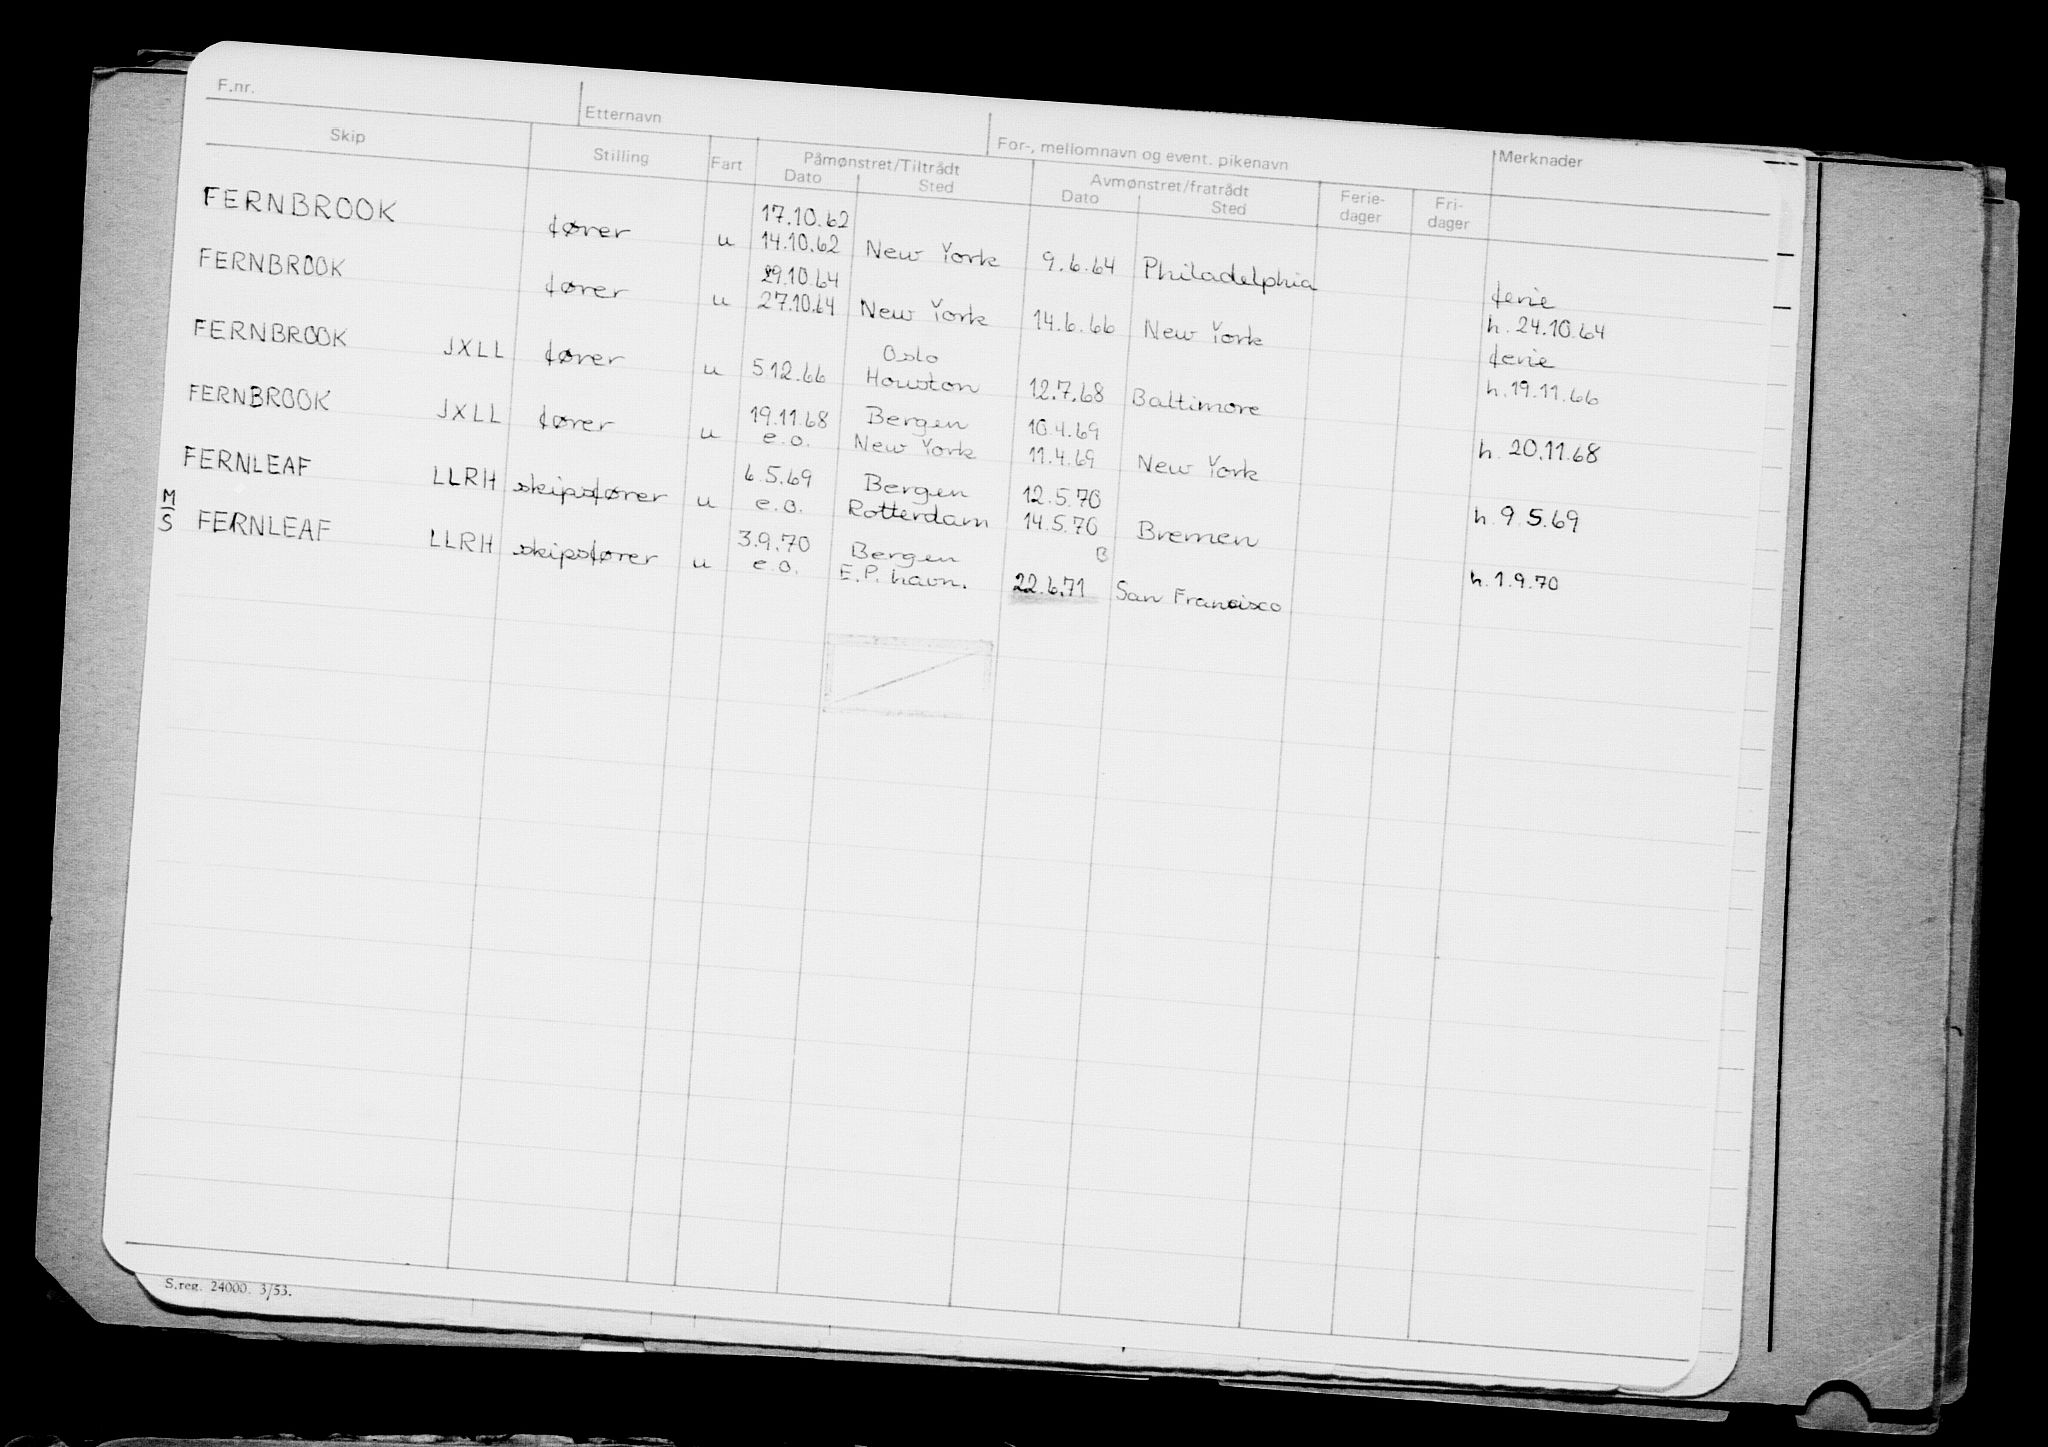 F.nr. Etternavn For-, mellomnavn og event. pikenavn Merknader
Skip Stilling Fart Påmønstret/Tiltrådt Avmønstret/fratrådt Ferie-dager Fri-dager
Dato Sted Dato Sted
17.10.62
FERNBROOK fører u 14.10.62 New York 9.6.64 Philadelphia ferie
29.10.64
FERNBROOK fører u 27.10.64 New York 14.6.66 New York h. 24.10.64
Oslo ferie
FERNBROOK JXLL fører u 5.12.66 Houston 12.7.68 Baltimore h. 19.11.66
19.11.68 Bergen 10.4.69
FERNBROOK JXLL fører u e.o. New York 11.4.69 New York h. 20.11.68
6.5.69 Bergen 12.5.70
FERNLEAF LLRH skipsfører u e.o. Rotterdam 14.5.70 Bremen h. 9.5.69
3.9.70 Bergen B
M/S FERNLEAF LLRH skipsfører u e.o. E.P. havn. 22.6.71 San Francisco h. 1.9.70
S.reg. 24000. 3/53.